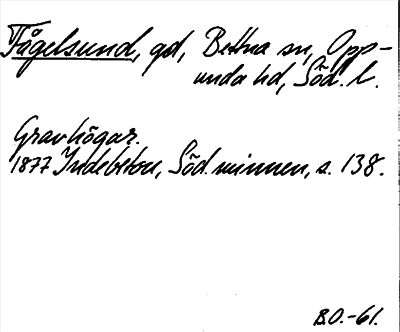 Fågelsund, gd, Bettna sn, Opp-
unda hd, Söd. l.
Gravhögar.
1877 Indebetou, Söd. minnen, s. 138.
B.O.-61.